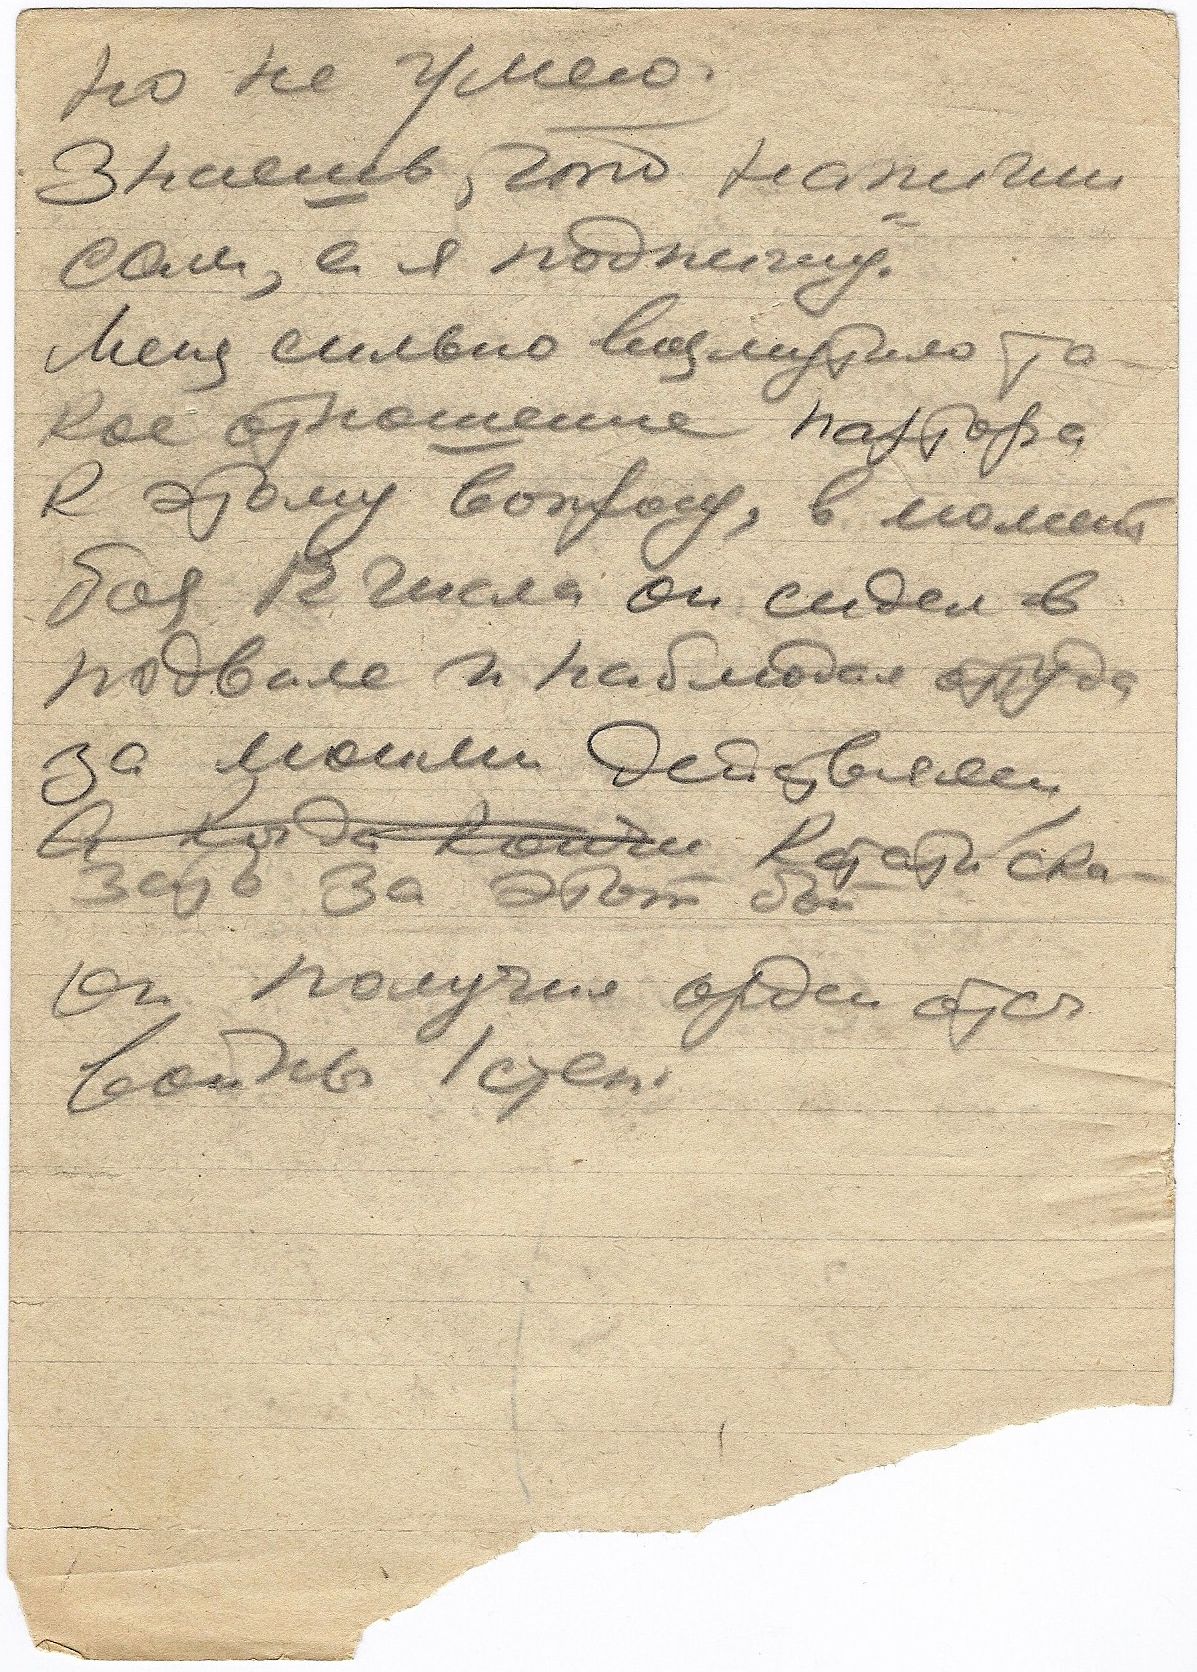 но не умею.
Знаешь, что напиши
сам, а я подпишу.
Меня сильно возмутило та-
кое отношение парторга
к этому вопросу, в момент
боя 12 числа он сидел в
подвале и наблюдал оттуда
за моими действиями,
А когда кончи кстати ска-
зать за этот бой
он получил орден отеч
войны 1 степ.